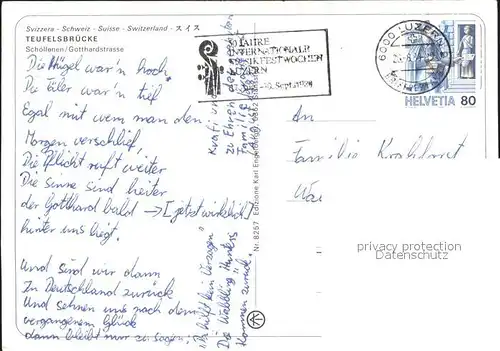 Svizzera - Schweiz - Suisse - Switzerland - スイス
TEUFELSBRÜCKE
Schöllenen / Gotthardstrasse
Die Hügel war'n hoch
Die Täler war'n tief
Egal mit wem man den
Morgen verschlief,
Die Pflicht ruft weiter
Die Sinne sind heiter
der Gotthard bald → [jetzt wirklich!]
hinter uns liegt.
Und sind wir dann
In Deutschland zurück
Und sehnen uns nach dem
vergangenem Glück
dann bleibt nur zu sagen:
"Da hilft kein Verzagen"
Die Wabbling Hunters
Kommen zurück.
Kraft und
zu Ehren der
Familie
Nr. 8257 Edizione Karl Engelberger, 6362 Stansstad
50 JAHRE
INTERNATIONALE
MUSIKFESTWOCHEN
LUZERN
Sept. 1988
6000 LUZERN
HELVETIA 80
An
Familie
privacy protection
Datenschutz